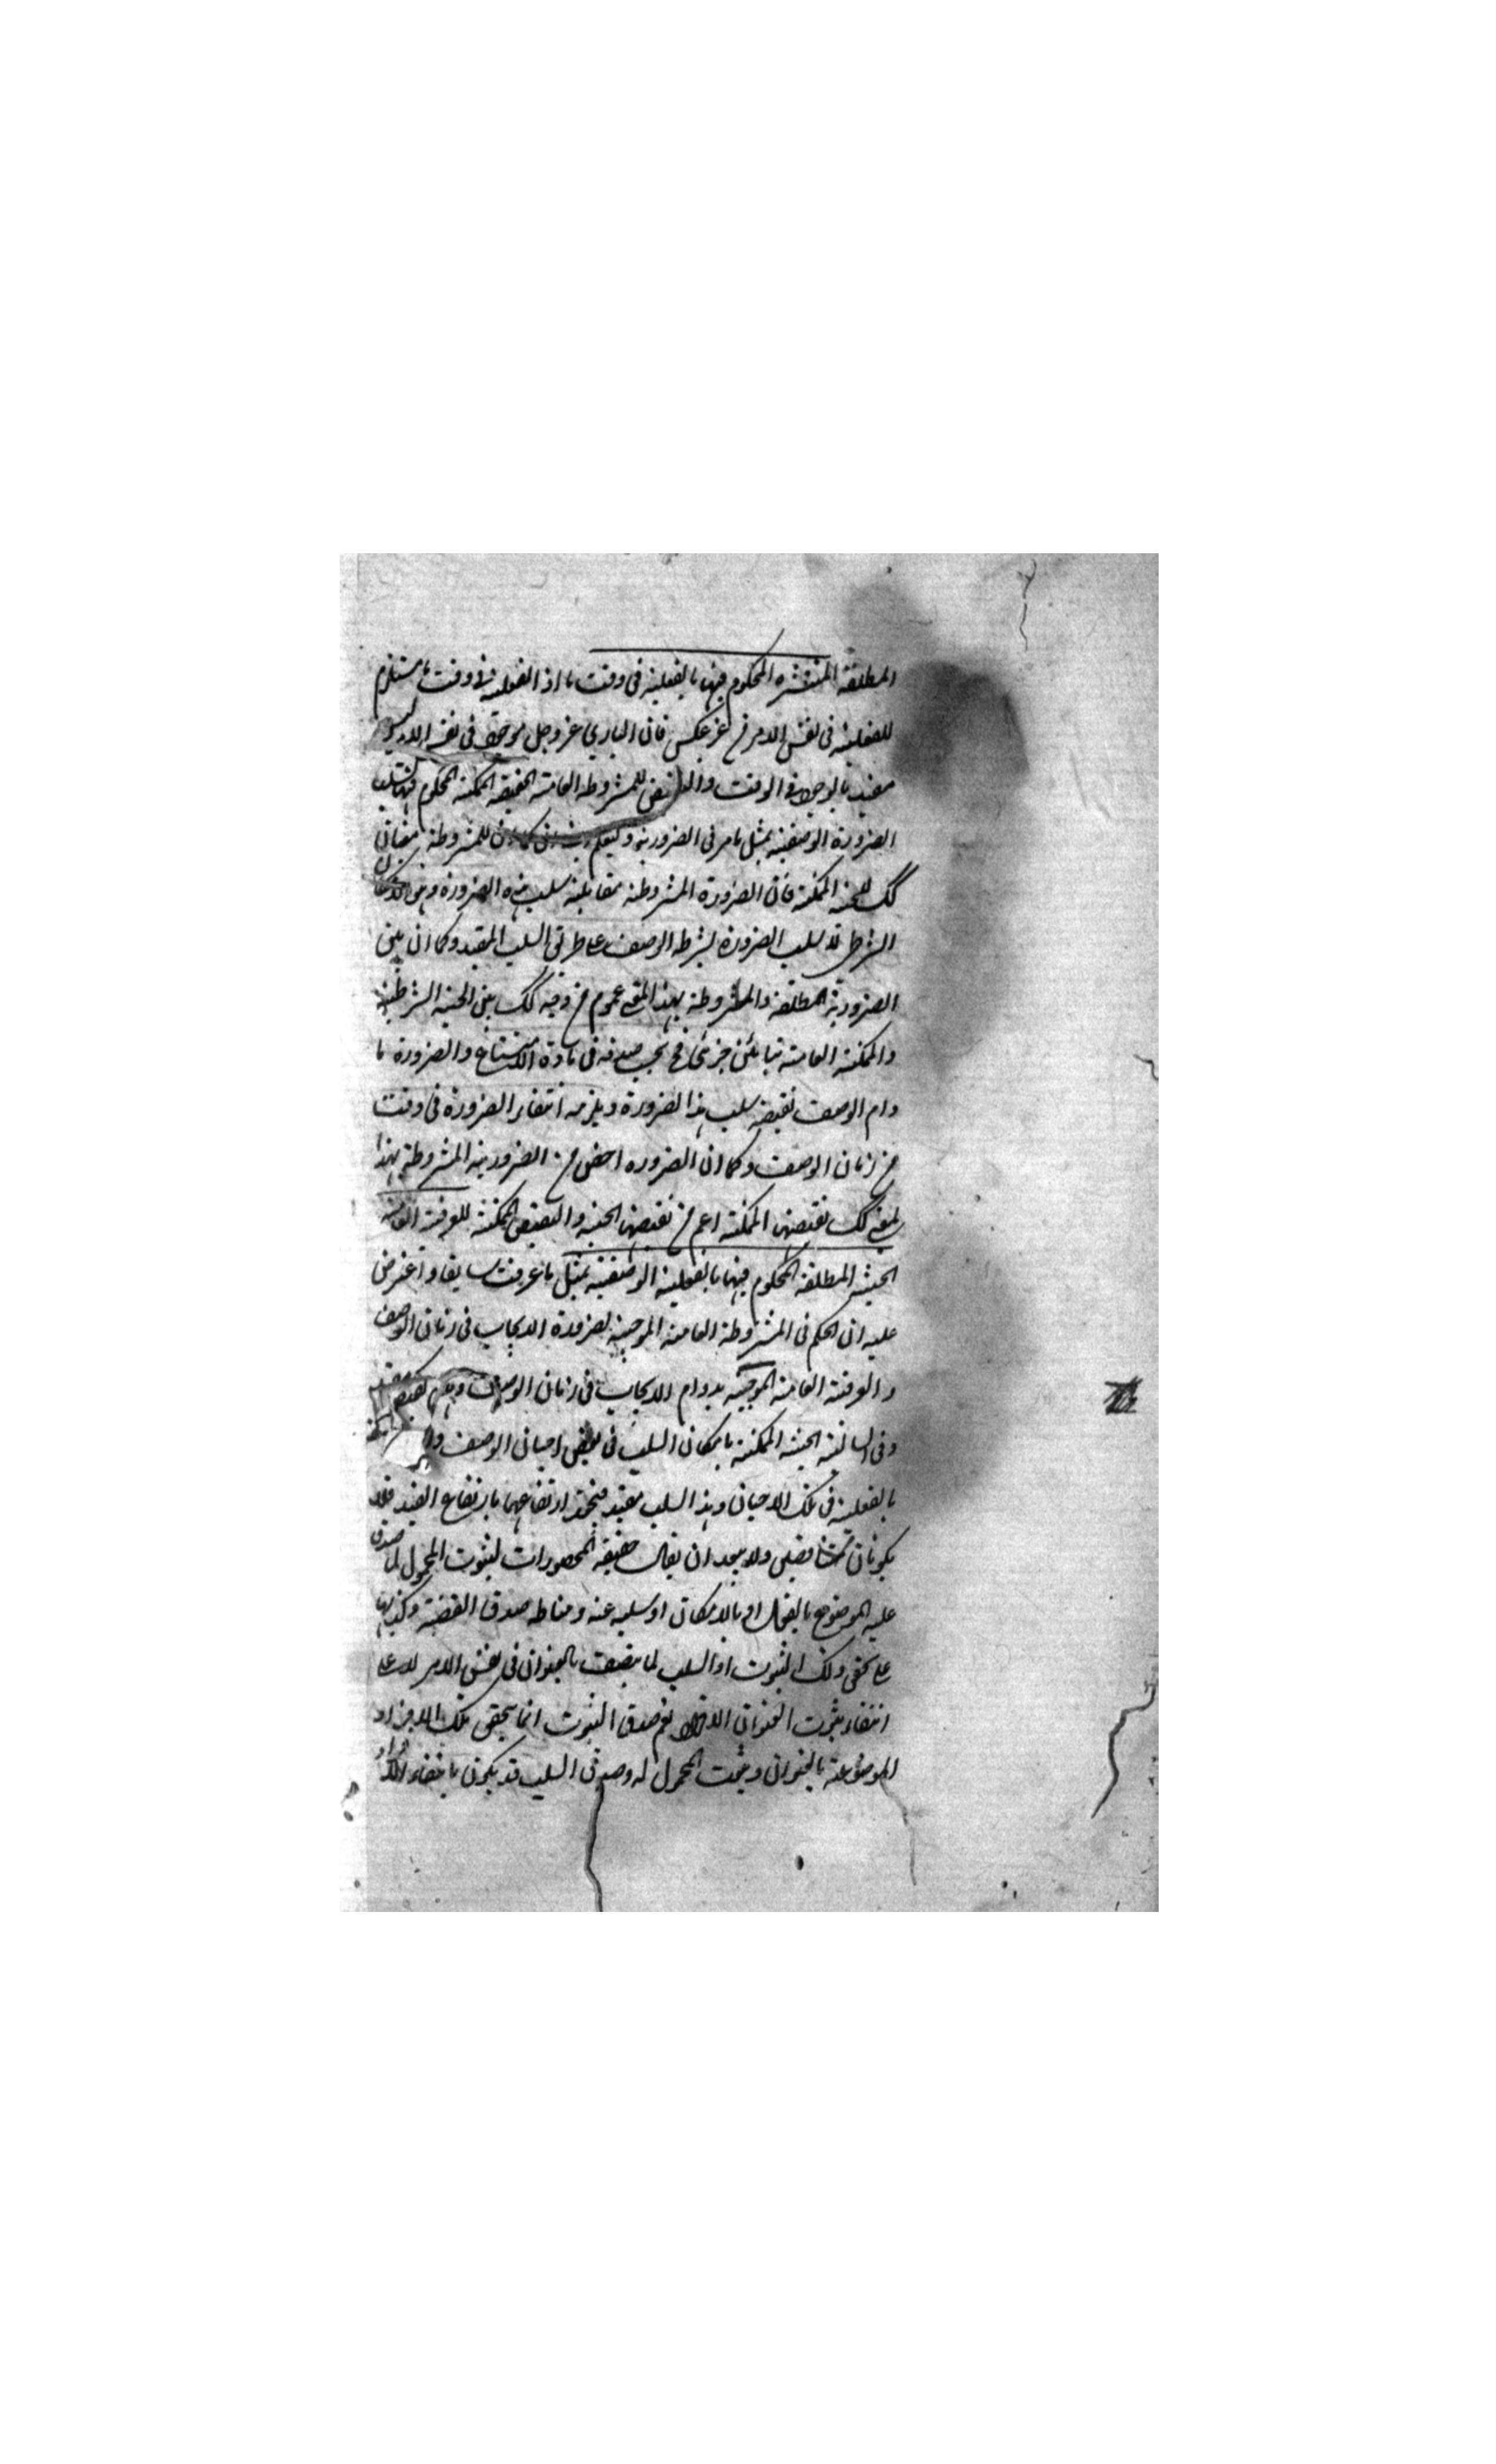 المطلقة المنتشره المحكوم فيها بالفعلية فى وقت ما اذ الفعلية فى وقت ما مستلزم
للفعلية فى نفس الامر من غير عكس فان البارى عز وجل موجود فى نفس الامر وليس
مقيد بالوجود فى الوقت والنقيض للمشروطه العامة الحينية الممكنة المحكوم فيها بسلب
الضرورة الوصفية بمثل ما مر فى الضرورية وليعلم ان كما ان للمشروطة معان
كك للحينية الممكنة فان الضرورة المشروطة مقابلة سلب هذه الضرورة
الشرط لا سلب الضرورة بشرط الوصف على طريق السلب المقيد وكما ان بين
الضرورية المطلقة والمشروطة بهذا المعنى عموم من وجه كك بين الحينية الشرطية
والممكنة العامة تباين جزئى فح يجب صدقه فى مادة الامتناع والضرورة ما
دام الوصف نقيضه سلب هذا الضرورة ويلزمه انتفاء الضرورة فى وقت
من زمان الوصف وكما ان الضروره اخص من الضرورية المشروطة بهذا
المعنى كك نقيضها الممكنة اعم من نقيضها الحينية والنقيض الممكنة للعرفية العامة
الحينية المطلقة المحكوم فيها بالفعلية الوصفية بمثل ما عرفت سابقا واعترض
عليه ان الحكم فى المشروطة العامة الموجبة لضرورة الايجاب فى زمان الوصف
والعرفية العامة الموجبة بدوام الايجاب فى زمان الوصف
وفى السالبة الحينية الممكنة بامكان السلب فى بعض احيان الوصف
بالفعلية فى تلك الاحيان وهذا السلب مقيد فيجوز ارتفاعهما بارتفاع القيد فلا
يكونان متناقضين ولا يبعد ان يقال حقيقة المحصورات لثبوت المحمول لما صدق
عليه الموضوع بالفعل او بالامكان او سلبه عنه ومناط صدق القضية وكذبها
على تحقق ذلك الثبوت او السلب لما يتصف بالعنوان فى نفس الامر لا على
انتفاء ثبوت العنوان نعم صدق الثبوت انما يتحقق بتلك الافراد
الموضوعة بالعنوان وثبوت المحمول له وصدق السلب قد يكون بانتفاء الافراد